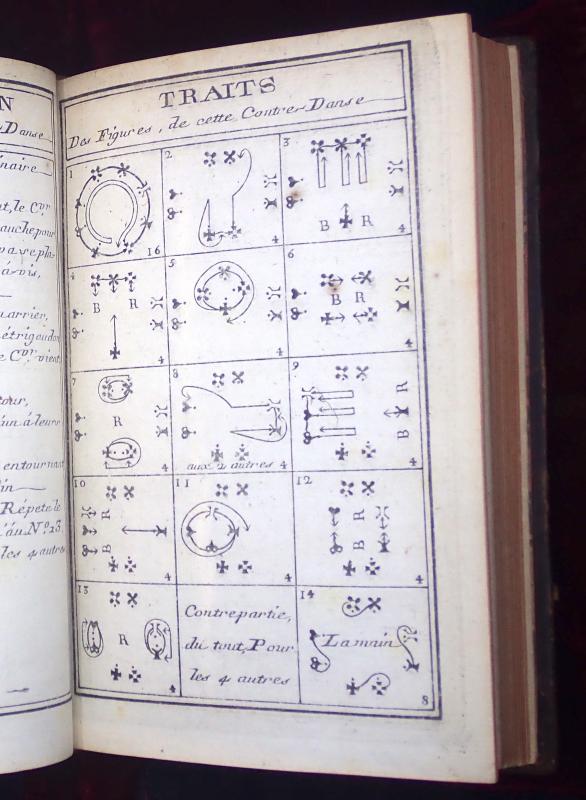 N
Danse
naire
TRAITS
Des Figures, de cette Contre-Danse
1
16
2
4
3
B R
4
4
B R
4
5
4
6
B R
4
7
R
4
8
aux 2 autres 4
9
R
B
4
10
R
B
4
11
4
12
R
B
4
13
R
4
Contrepartie,
du tout, Pour
les 4 autres
14
La main
8
nt, le Cvr
auche pour
a vis,
arrier,
e Cvr vient
tour,
un à leurs
en tournant
in
Répete le
'au No. 13.
les 4 autres